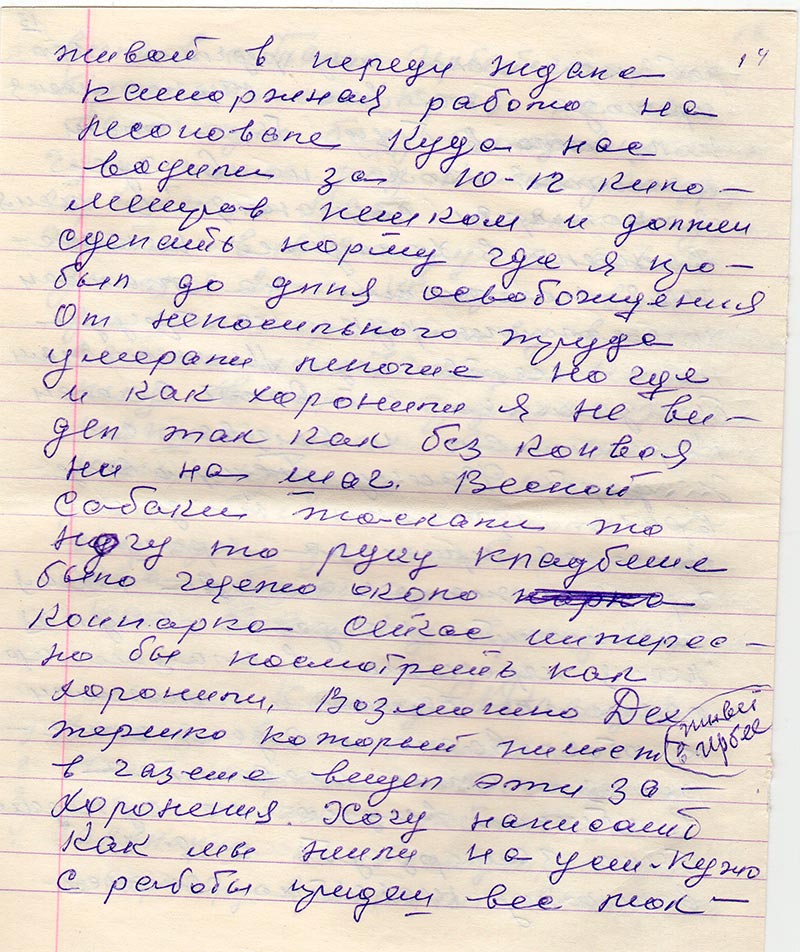 14
живой в переди ждала
каторжная работа на
лесоповале куда нас
водили за 10-12 кило-
метров пешком и должн
сделать норму где я про-
был до дння освобождения
От непосильного труда
умерали многие но где
и как хоронили я не ви-
дел так как без конвоя
ни на шаг. Весной
собаки таскали то
ногу то руку кладбеще
было гдето около
конпарка сейчас интерес-
но бы посмотреть как
хоронили. Возможно Дех
терешко который пишет
живет
в Ирбее
в газете видел эти за-
хоронения. Хочу написать
Как мы жили на
с работы придем вес мок-